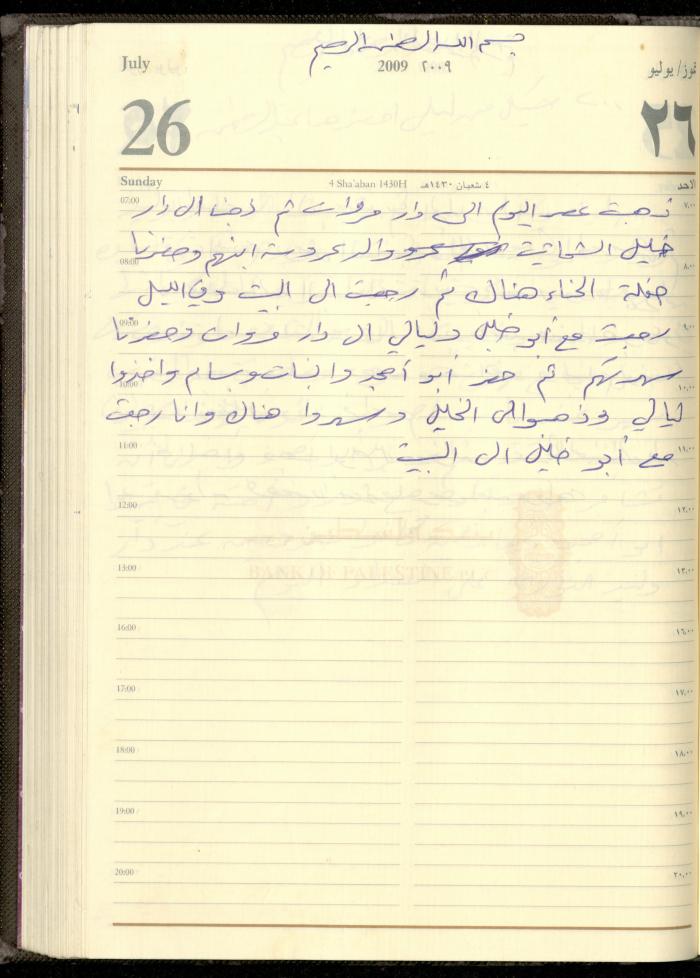 بسم الله الرحمن الرحيم
July
2009 ٢٠٠٩
تموز/يوليو
26
٢٦
Sunday
4 Sha'aban 1430H ٤ شعبان ١٤٣٠هـ
الاحد
07:00 ٧,٠٠
ذهبت عصر اليوم الى دار مروان ثم ذهبنا ال دار
خليل الشماتيت والد عروسة ابنهم وحضرنا
08:00 ٨,٠٠
حفلة الحناء هناك ثم رجعت ال البيت وفي الليل
09:00 ٩,٠٠
رجعت مع أبو خليل وليالي ال دار مروان وحضرنا
سهرتهم ثم حضر أبو أمجد والبنات وسام واخذوا
10:00 ١٠,٠٠
ليالي وذهبوا الى الخليل وسهروا هناك وانا رجعت
11:00 ١١,٠٠
مع أبو خليل ال البيت
12:00 ١٢,٠٠
13:00 ١٣,٠٠
BANK OF PALESTINE
16:00 ١٦,٠٠
17:00 ١٧,٠٠
18:00 ١٨,٠٠
19:00 ١٩,٠٠
20:00 ٢٠,٠٠